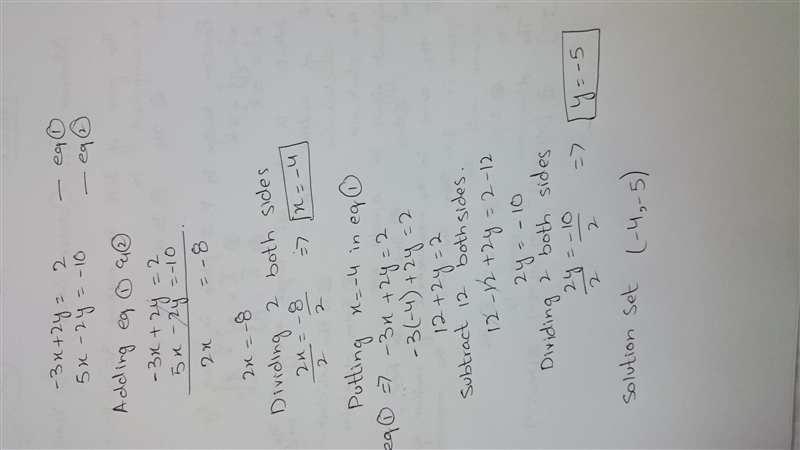 -3x+2y = 2 — eq①
5x-2y = -10 — eq②
Adding eq ① & ②
-3x + 2y = 2
5x - 2y = -10
2x = -8
2x = -8
Dividing 2 both sides
2x/2 = -8/2 => x = -4
Putting x=-4 in eq ①
eq ① => -3x + 2y = 2
-3(-4)+2y = 2
12+2y = 2
Subtract 12 both sides.
12-12+2y = 2-12
2y = -10
Dividing 2 both sides
2y/2 = -10/2 => y = -5
Solution Set (-4,-5)